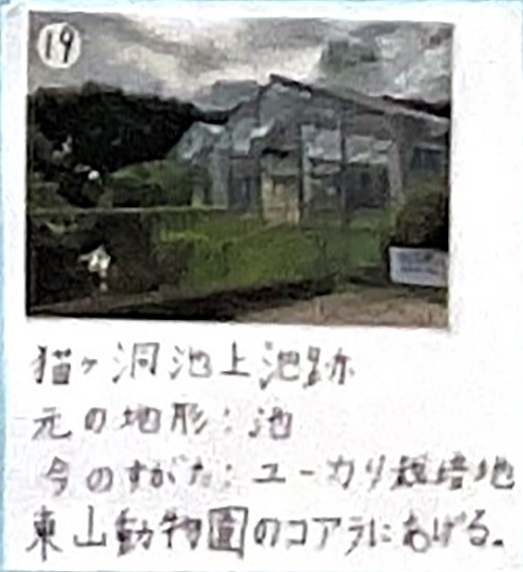 19
猫ヶ洞池上池跡
元の地形：池
今のすがた：ユーカリ栽培地
東山動物園のコアラにあげる。